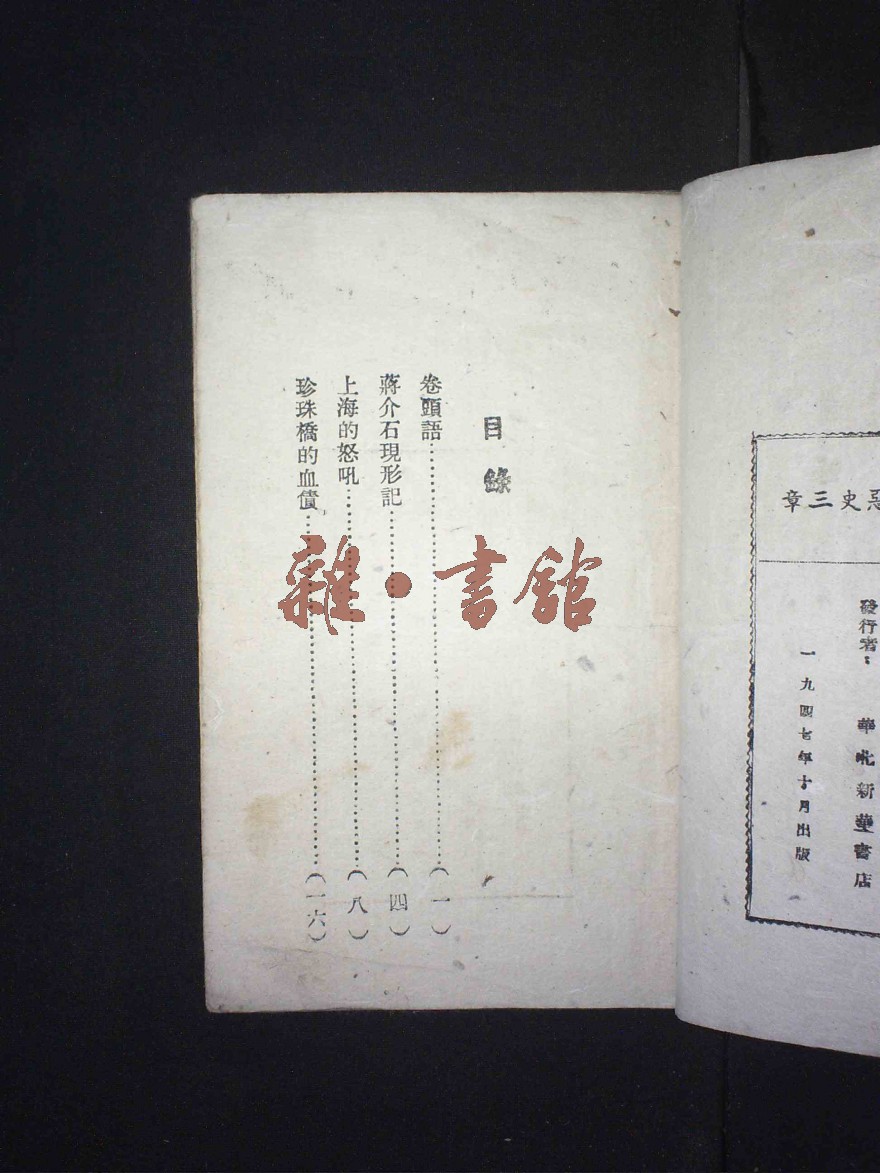 惡史三章
發行者：華北新華書店
一九四七年十月出版
目錄
卷頭語……（一）
蔣介石現形記……（四）
上海的怒吼……（八）
珍珠橋的血債……（一六）
雜·書館